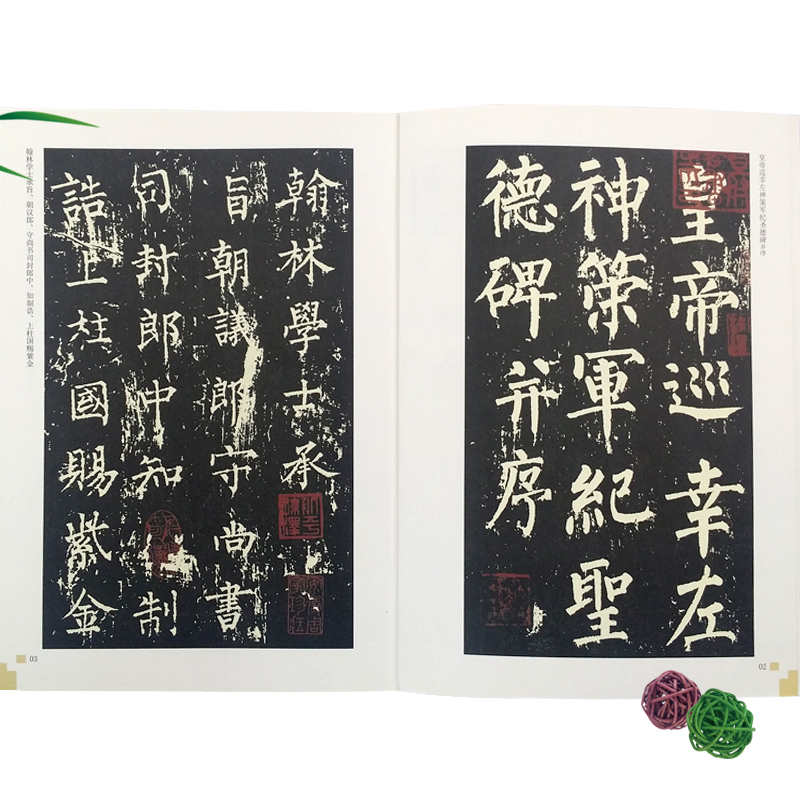 皇帝巡幸左神策军纪圣德碑并序
皇帝巡幸左
神策軍紀聖
德碑并序
02
翰林學士承
旨朝議郎守尚書
司封郎中知制
誥上柱國賜紫金
翰林学士承旨、朝议郎、守尚书司封郎中、知制诰、上柱国赐紫金
03